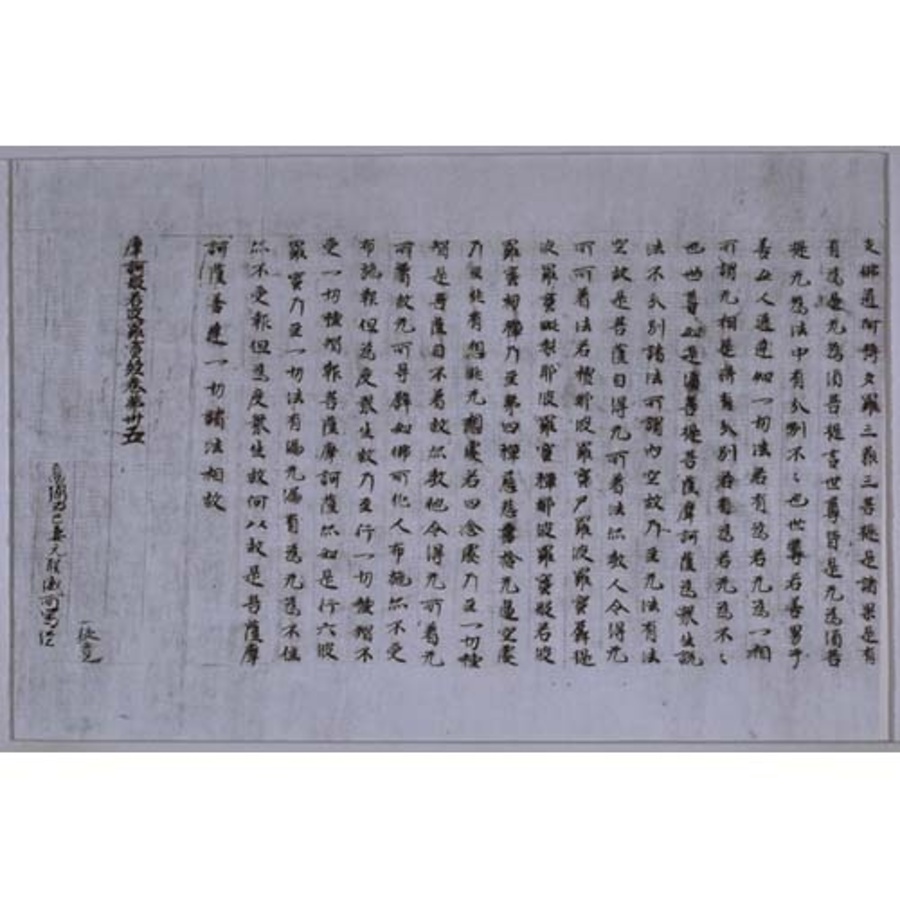 支佛道阿耨多羅三藐三菩提是諸果是有
有為是无為須菩提言世尊皆是无為須菩
提无為法中有分別不不也世尊若善男子
善女人通達知一切法若有為若无為一相
所謂无相是時有分別若有為若无為不不
也世尊如是須菩提菩薩摩訶薩為眾生說
法不分別諸法所謂內空故乃至无法有法
空故是菩薩自得无所着法然教人令得无
所可着法若檀那波羅蜜尸羅波羅蜜羼提
波羅蜜毗梨耶波羅蜜禪那波羅蜜般若波
羅蜜初禪乃至第四禪慈悲喜捨无邊空處
乃至非有想非无想處若四念處乃至一切種
智是菩薩自不着故然教他令得无所着无
所着故无所导譬如佛所化人布施然不受
布施報但為度眾生故乃至行一切種智不
受一切種智報菩薩摩訶薩然如是行六波
羅蜜乃至一切法有漏无漏有為无為不住
然不受報但為度眾生故何以故是菩薩摩
訶薩善達一切諸法相故
摩訶般若波羅蜜經卷第卅五
一挍竟